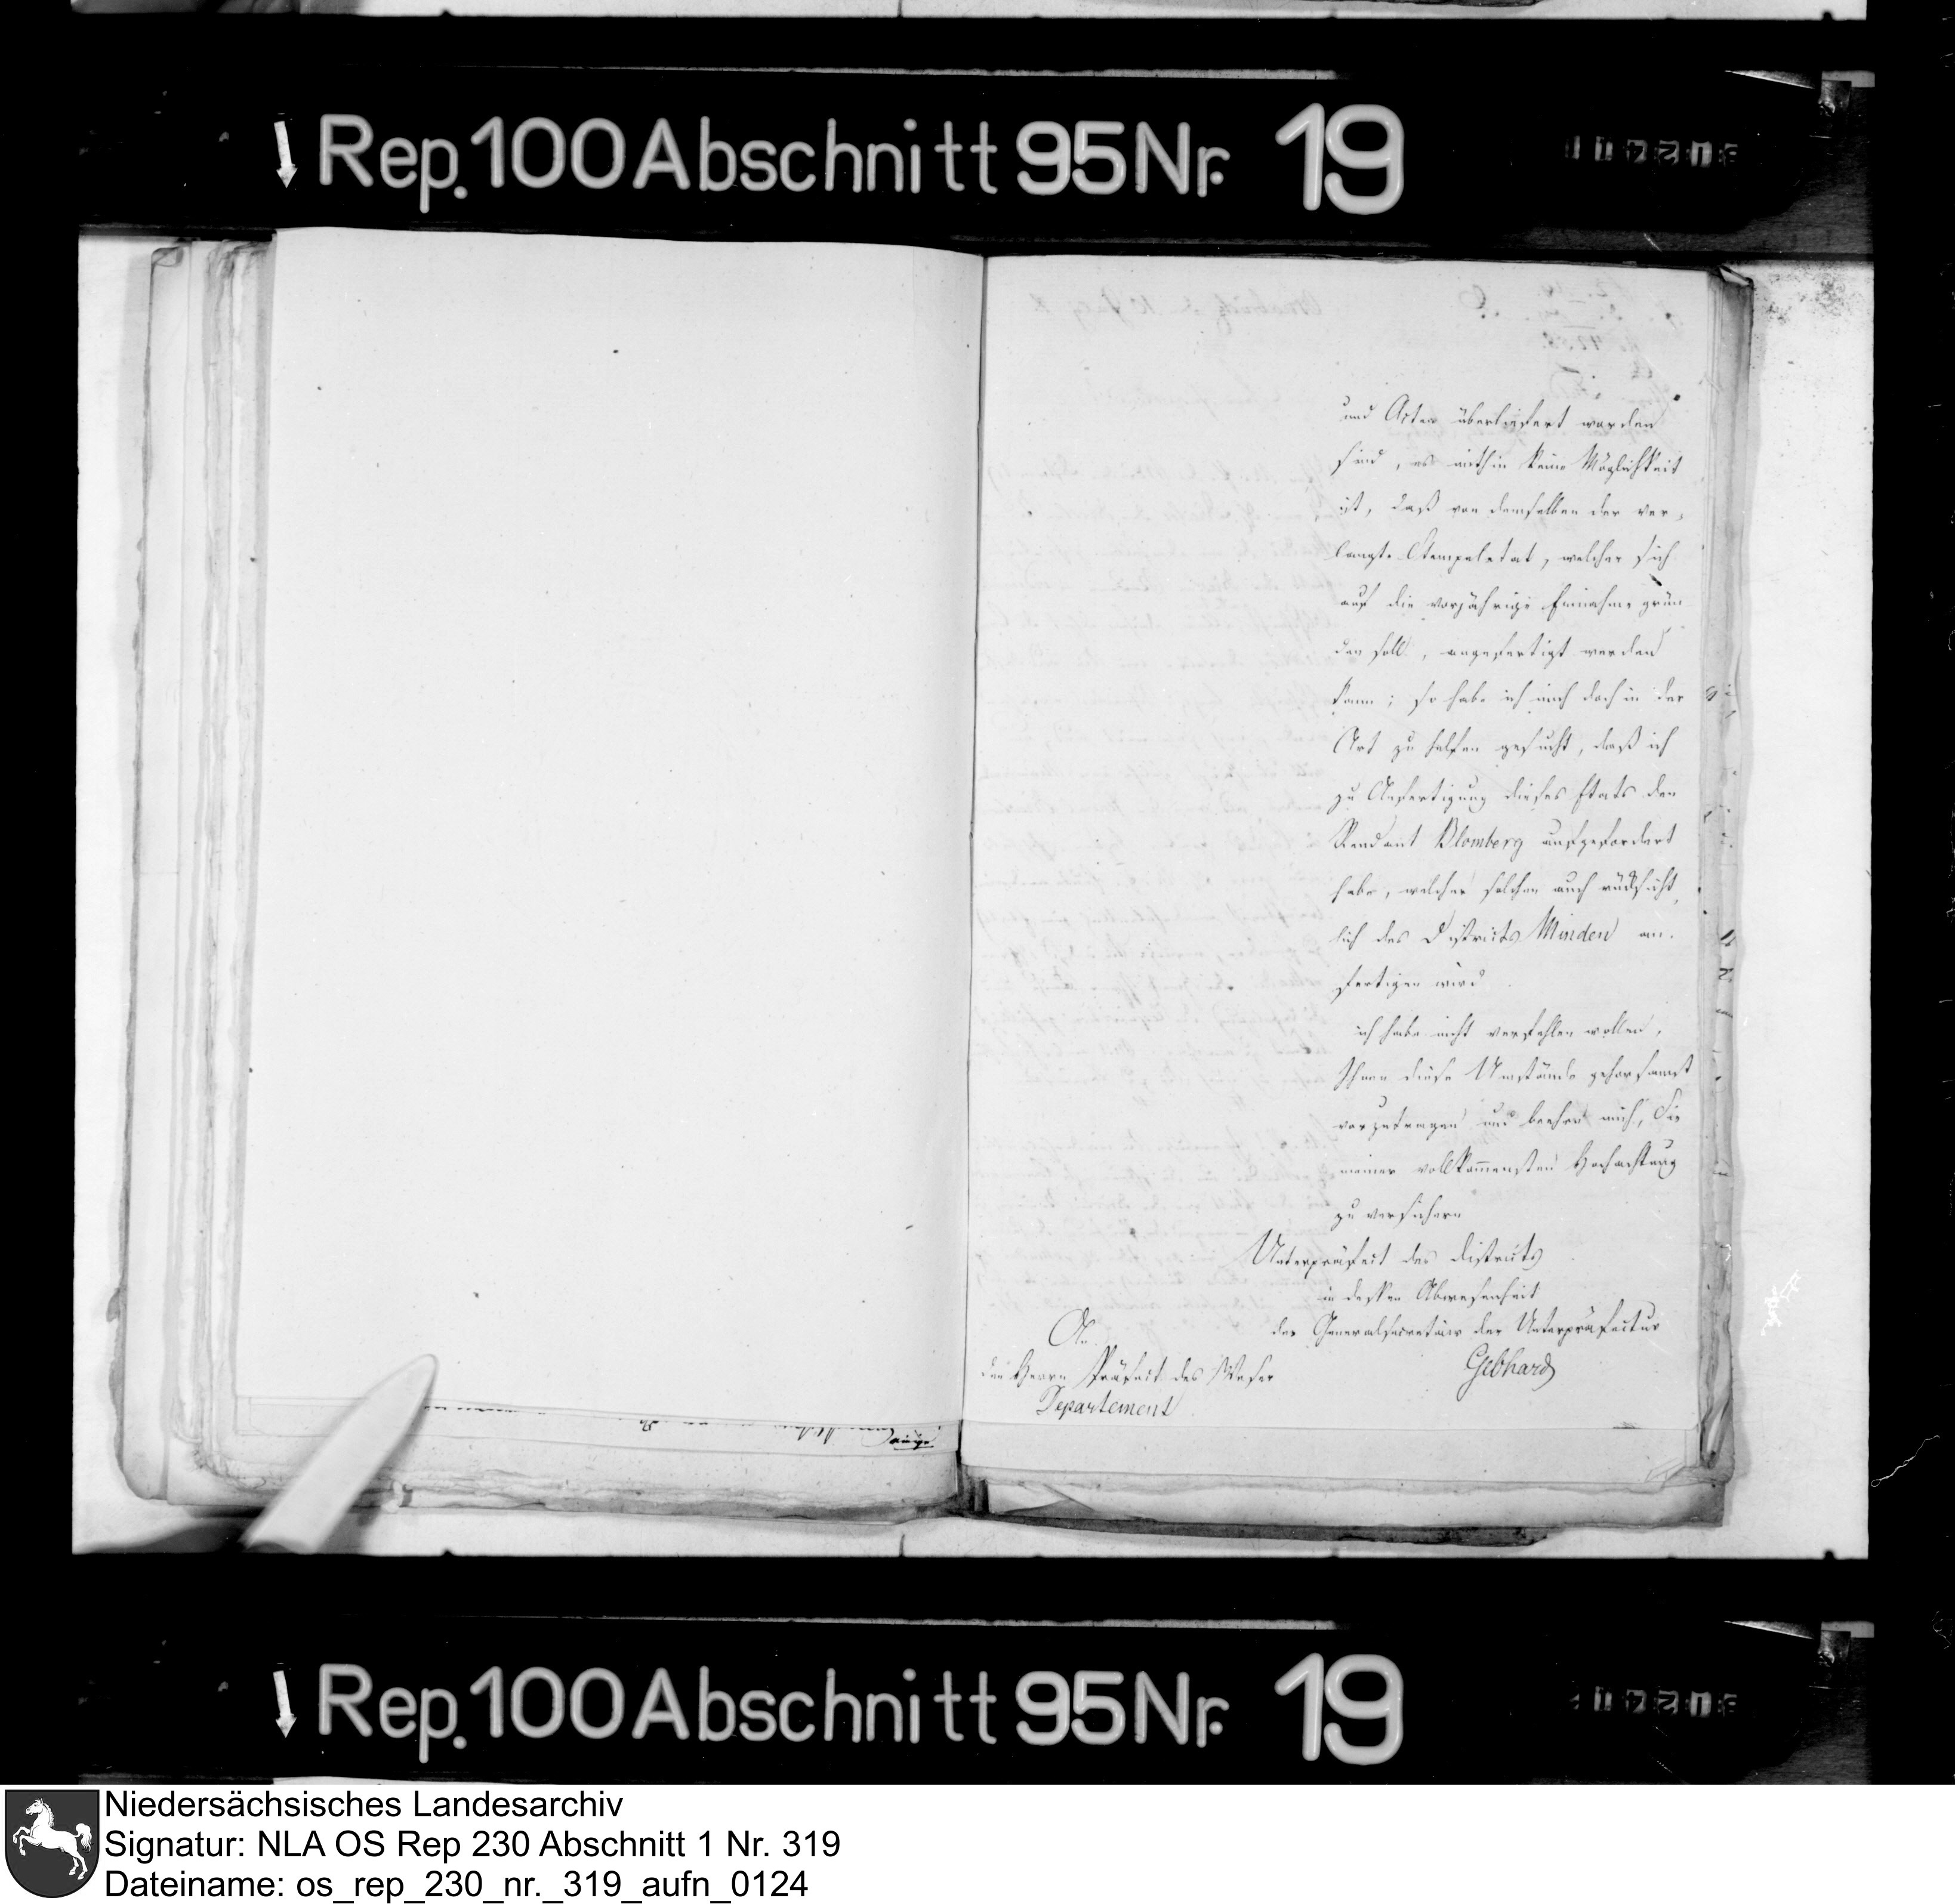 Rep. 100 Abschnitt 95 Nr. 19
und Acten überliefert worden
sind, es mithin keine Möglichkeit
ist, daß von demselben der ver-
langte Stempeletat, welcher sich
auf die vorjährige Einnahme grün
den soll, angefertigt werden
kann; so habe ich mich doch in der
Art zu helfen gesucht, daß ich
zu Anfertigung dieses Etats den
Rendant Blomberg aufgefordert
habe, welcher solchen auch rücksicht
lich des Districts Minden an-
fertigen wird.
ich habe nicht verfehlen wollen,
Ihnen diese Umstände gehorsamst
vorzutragen und beehre mich, Sie
meiner vollkommensten Hochachtung
zu versichern
Unterpräfect des Districts
in dessen Abwesenheit
der Generalsecretair der Unterpräfectur
Gebhard
An
den Herrn Präfect des Weser
Departement
Rep. 100 Abschnitt 95 Nr. 19
Niedersächsisches Landesarchiv
Signatur: NLA OS Rep 230 Abschnitt 1 Nr. 319
Dateiname: os_rep_230_nr._319_aufn_0124